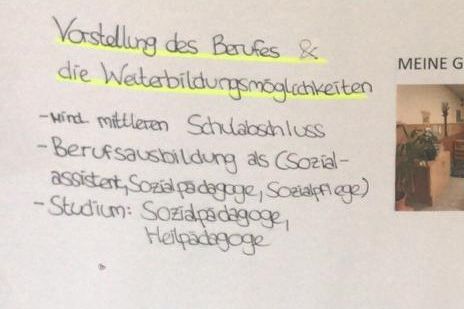 Vorstellung des Berufes &
die Weiterbildungsmöglichkeiten
MEINE G
- mind. mittleren Schulabschluss
- Berufsausbildung als (Sozial-
assistent, Sozialpädagoge, Sozialpflege)
- Studium: Sozialpädagoge,
Heilpädagoge